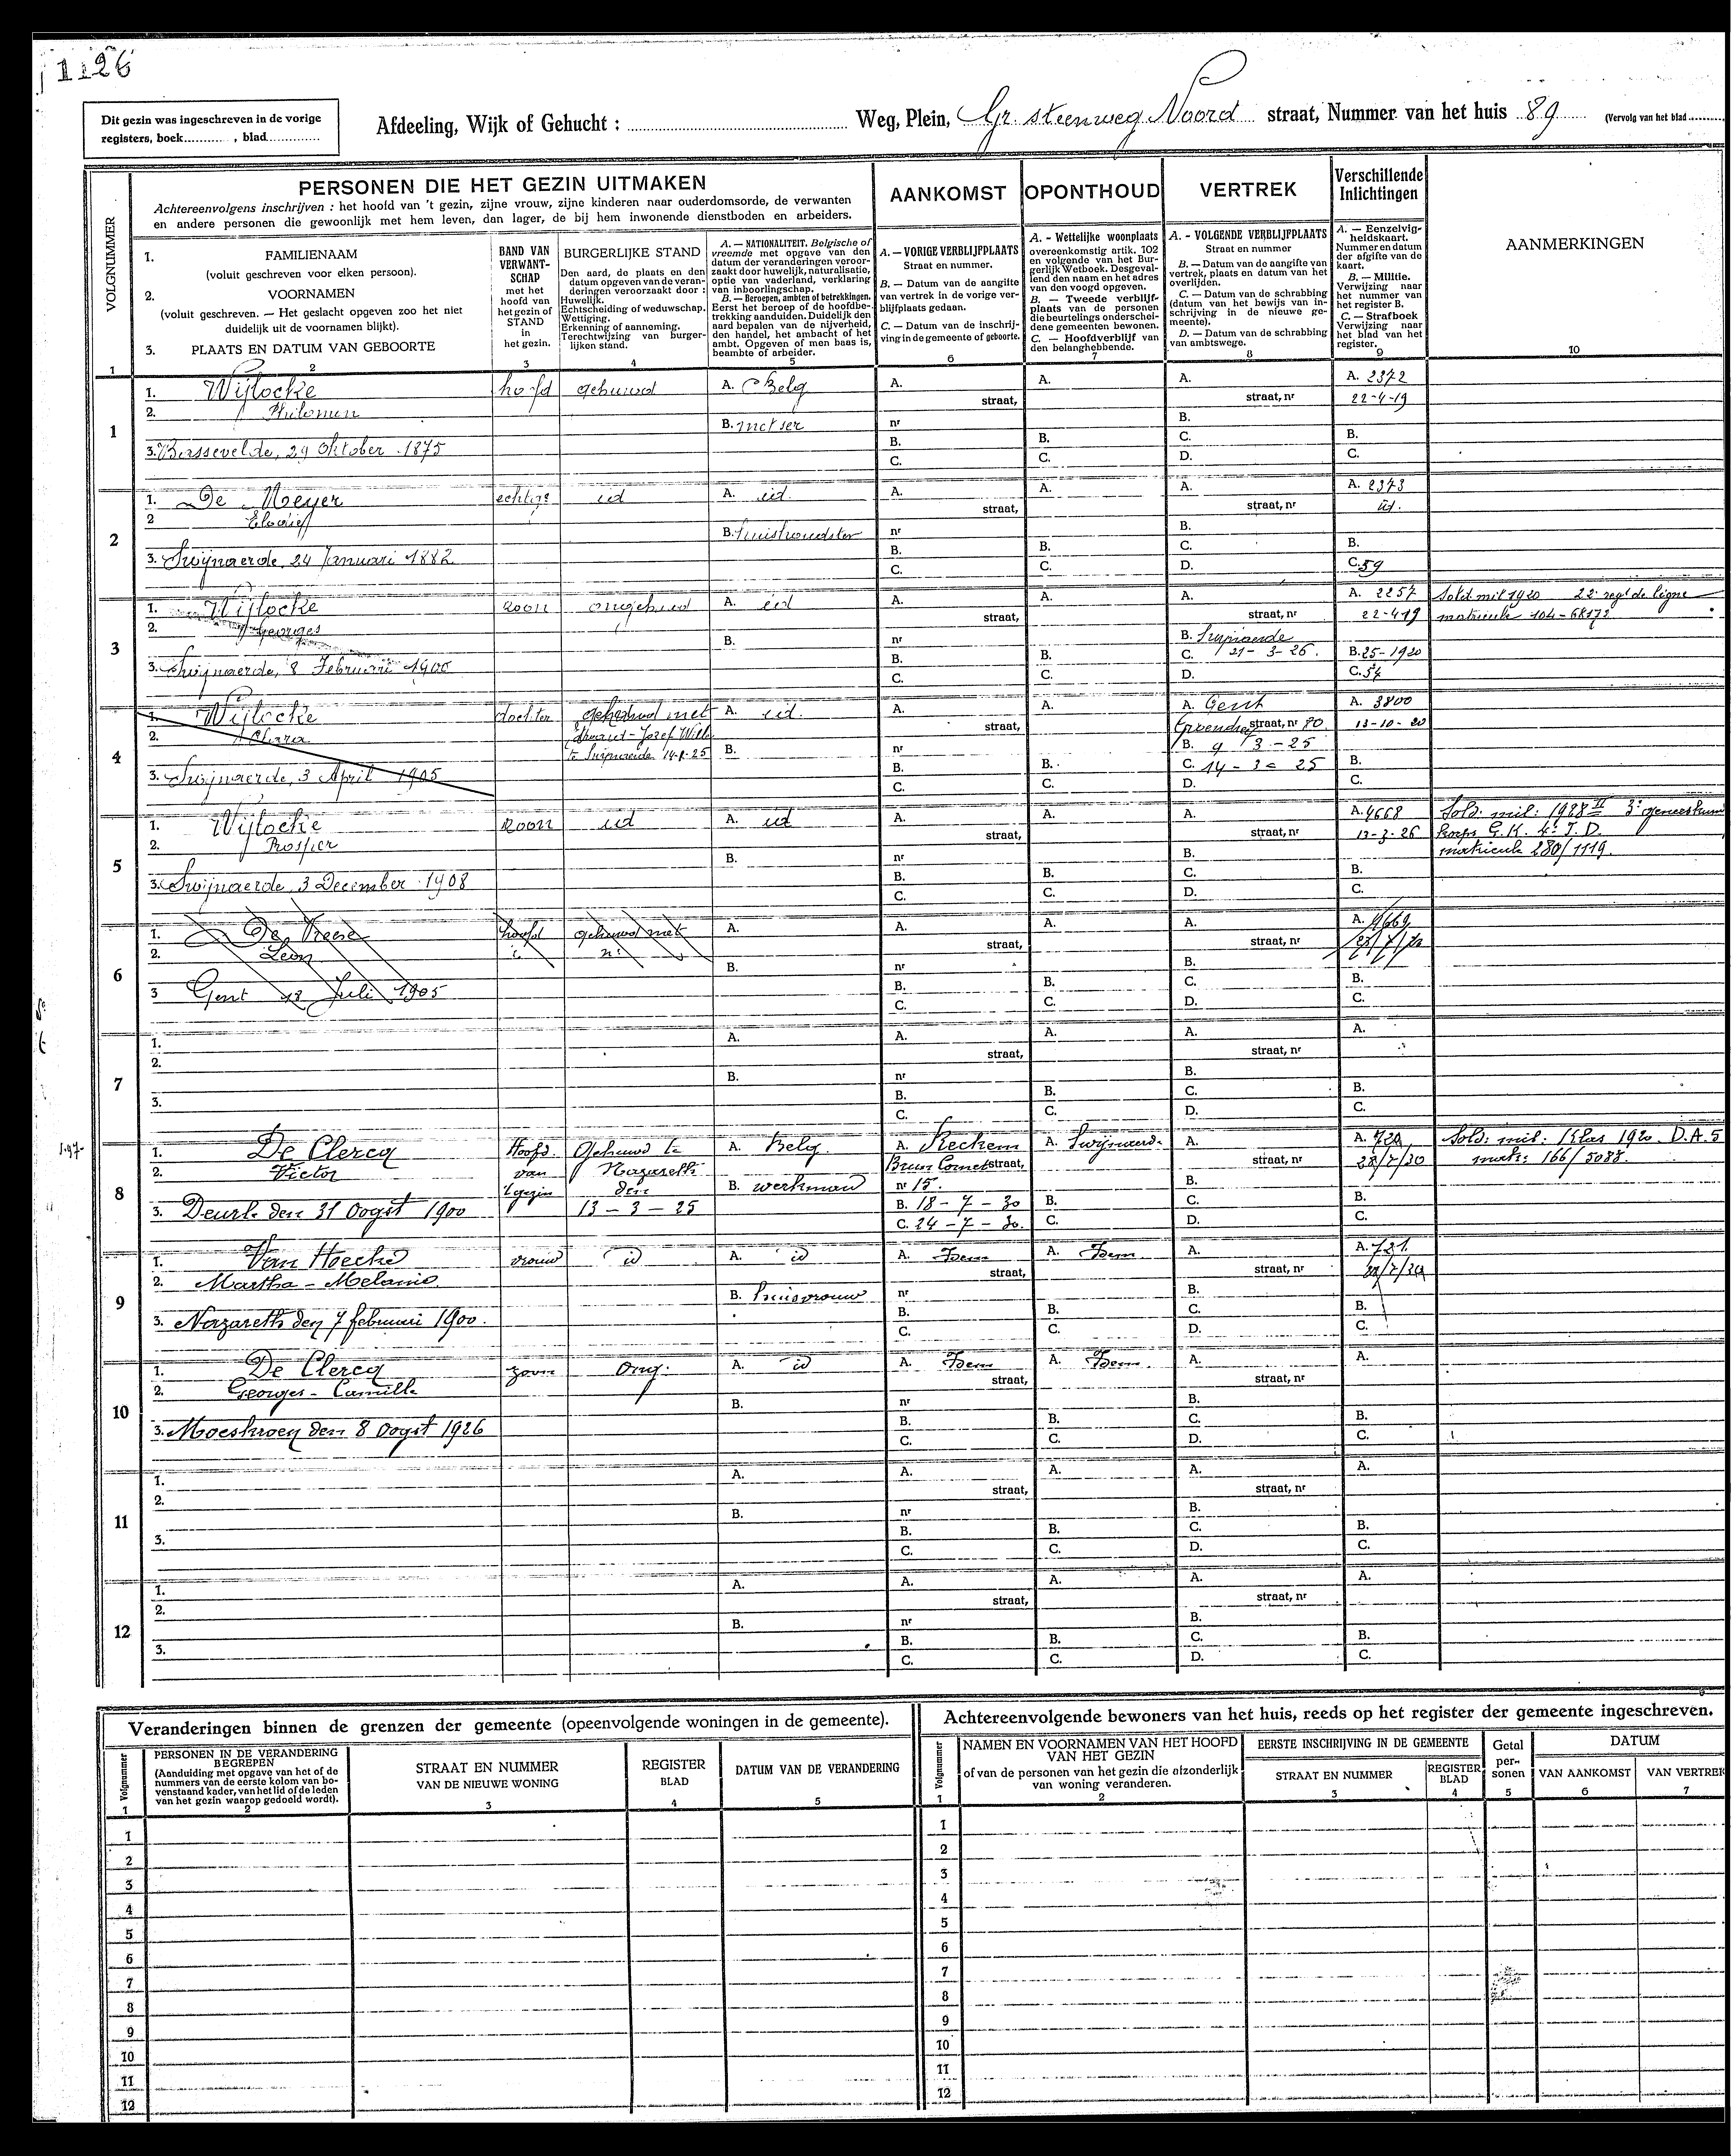 1126
Dit gezin was ingeschreven in de vorige
registers, boek , blad
Afdeeling, Wijk of Gehucht : Weg, Plein, Gr. steenweg Noord straat, Nummer van het huis 89 (Vervolg van het blad
PERSONEN DIE HET GEZIN UITMAKEN
Achtereenvolgens inschrijven : het hoofd van 't gezin, zijne vrouw, zijne kinderen naar ouderdomsorde, de verwanten
en andere personen die gewoonlijk met hem leven, dan lager, de bij hem inwonende dienstboden en arbeiders.
AANKOMST
OPONTHOUD
VERTREK
Verschillende
Inlichtingen
AANMERKINGEN
VOLGNUMMER
1. FAMILIENAAM
(voluit geschreven voor elken persoon).
2. VOORNAMEN
(voluit geschreven. — Het geslacht opgeven zoo het niet
duidelijk uit de voornamen blijkt).
3. PLAATS EN DATUM VAN GEBOORTE
BAND VAN
VERWANT-
SCHAP
met het
hoofd van
het gezin of
STAND
in
het gezin.
BURGERLIJKE STAND
Den aard, de plaats en den
datum opgeven van de veran-
deringen veroorzaakt door :
Huwelijk.
Echtscheiding of weduwschap.
Wettiging.
Erkenning of aanneming.
Terechtwijzing van burger-
lijken stand.
A. — NATIONALITEIT. Belgische of
vreemde met opgave van den
datum der veranderingen veroor-
zaakt door huwelijk, naturalisatie,
optie van vaderland, verklaring
van inboorlingschap.
B. — Beroepen, ambten of betrekkingen.
Eerst het beroep of de hoofdbe-
trekking aanduiden. Duidelijk den
aard bepalen van de nijverheid,
den handel, het ambacht of het
ambt. Opgeven of men baas is,
beambte of arbeider.
A. — VORIGE VERBLIJFPLAATS
Straat en nummer.
B. — Datum van de aangifte
van vertrek in de vorige ver-
blijfplaats gedaan.
C. — Datum van de inschrij-
ving in de gemeente of geboorte.
A. - Wettelijke woonplaats
overeenkomstig artik. 102
en volgende van het Bur-
gerlijk Wetboek. Desgeval-
lend den naam en het adres
van den voogd opgeven.
B. — Tweede verblijf-
plaats van de personen
die beurtelings onderschei-
dene gemeenten bewonen.
C. — Hoofdverblijf van
den belanghebbende.
A. - VOLGENDE VERBLIJFPLAATS
Straat en nummer
B. — Datum van de aangifte van
vertrek, plaats en datum van het
overlijden.
C. — Datum van de schrabbing
(datum van het bewijs van in-
schrijving in de nieuwe ge-
meente).
D. — Datum van de schrabbing
van ambtswege.
A. — Eenzelvig-
heidskaart.
Nummer en datum
der afgifte van de
kaart.
B. — Militie.
Verwijzing naar
het nummer van
het register B.
C. — Strafboek
Verwijzing naar
het blad van het
register.
1 2 3 4 5 6 7 8 9 10
1 1. Wijlocke hoofd gehuwd A. Belg A. straat, A. A. straat, nr A. 2372
2. Philemon 22-4-19
B. metser nr B.
3. Bassevelde, 29 Oktober 1875 B. C. B. C. C. D. B. C.
2 1. De Meyer echtge id A. id. A. straat, A. A. straat, nr A. 2373
2 Elodie id.
B. huishoudster nr B.
3. Swijnaerde, 24 Januari 1882. B. C. B. C. C. D. B. C. 59
3 1. Wijlocke zoon ongehuwd A. id A. straat, A. A. straat, nr A. 2257 Sold. mil 1920 22e regt de ligne
2. Georges 22-4-19 matricule 104-68172
B. nr B. Swijnaerde
3. Swijnaerde, 8 Februari 1900 B. C. B. C. C. 21-3-26. D. B. 25-1920 C. 54
4 1. Wijlocke dochter gehuwd met A. id. A. straat, A. A. Gent straat, nr 80 A. 3800
2. Clara 13-10-20
te Swijnaerde 14-1-25 B. nr B. 9 3-25
3. Swijnaerde, 3 April 1905 B. C. B. C. C. 14-3-25 D. B. C.
5 1. Wijlocke zoon id A. id A. straat, A. A. straat, nr A. 4668 Sold. mil: 1928 II 3e geneeskun
2. Prosper 13-3-26 Korps G.K. 4e I.D.
B. nr B. matricule 280/1119.
3. Swijnaerde, 3 December 1908 B. C. B. C. C. D. B. C.
6 1. De hoofd gehuwd met A. A. straat, A. A. straat, nr A.
2. Leon
B. nr B.
3 Gent 18 Juli 1905 B. C. B. C. C. D. B. C.
7 1. A. A. straat, A. A. straat, nr A.
2.
B. nr B.
3. B. C. B. C. C. D. B. C.
197
8 1. De Clercq Hoofd Gehuwd te A. Belg. A. Reckem A. Swijnaerde A. straat, nr A. 720 Sold: mil: Klas 1920. D.A.5
2. Victor van Nazareth straat, 28/7/30 matr: 166/5088.
't gezin den B. werkman nr 15. B.
3. Deurle den 31 Oogst 1900 13-3-25 B. 18-7-30 C. 24-7-30. B. C. C. D. B. C.
9 1. Van Hoecke vrouw id A. id A. Idem straat, A. Idem A. straat, nr A. 721.
2. Martha-Melanie 28/7/30
B. huisvrouw nr B.
3. Nazareth den 7 februari 1900. B. C. B. C. C. D. B. C.
10 1. De Clercq zoon Ong. A. id A. Idem straat, A. Idem. A. straat, nr A.
2. Georges-Camille
B. nr B.
3. Moeskroen den 8 Oogst 1926 B. C. B. C. C. D. B. C.
11 1. A. A. straat, A. A. straat, nr A.
2.
B. nr B.
3. B. C. B. C. C. D. B. C.
12 1. A. A. straat, A. A. straat, nr A.
2.
B. nr B.
3. B. C. B. C. C. D. B. C.
Veranderingen binnen de grenzen der gemeente (opeenvolgende woningen in de gemeente).
Volgnummer
PERSONEN IN DE VERANDERING
BEGREPEN
(Aanduiding met opgave van het of de
nummers van de eerste kolom van bo-
venstaand kader, van het lid of de leden
van het gezin waarop gedoeld wordt).
STRAAT EN NUMMER
VAN DE NIEUWE WONING
REGISTER
BLAD
DATUM VAN DE VERANDERING
1 2 3 4 5
1
2
3
4
5
6
7
8
9
10
11
12
Achtereenvolgende bewoners van het huis, reeds op het register der gemeente ingeschreven.
Volgnummer
NAMEN EN VOORNAMEN VAN HET HOOFD
VAN HET GEZIN
of van de personen van het gezin die afzonderlijk
van woning veranderen.
EERSTE INSCHRIJVING IN DE GEMEENTE
STRAAT EN NUMMER
REGISTER
BLAD
Getal
per-
sonen
DATUM
VAN AANKOMST
VAN VERTREK
1 2 3 4 5 6 7
1
2
3
4
5
6
7
8
9
10
11
12